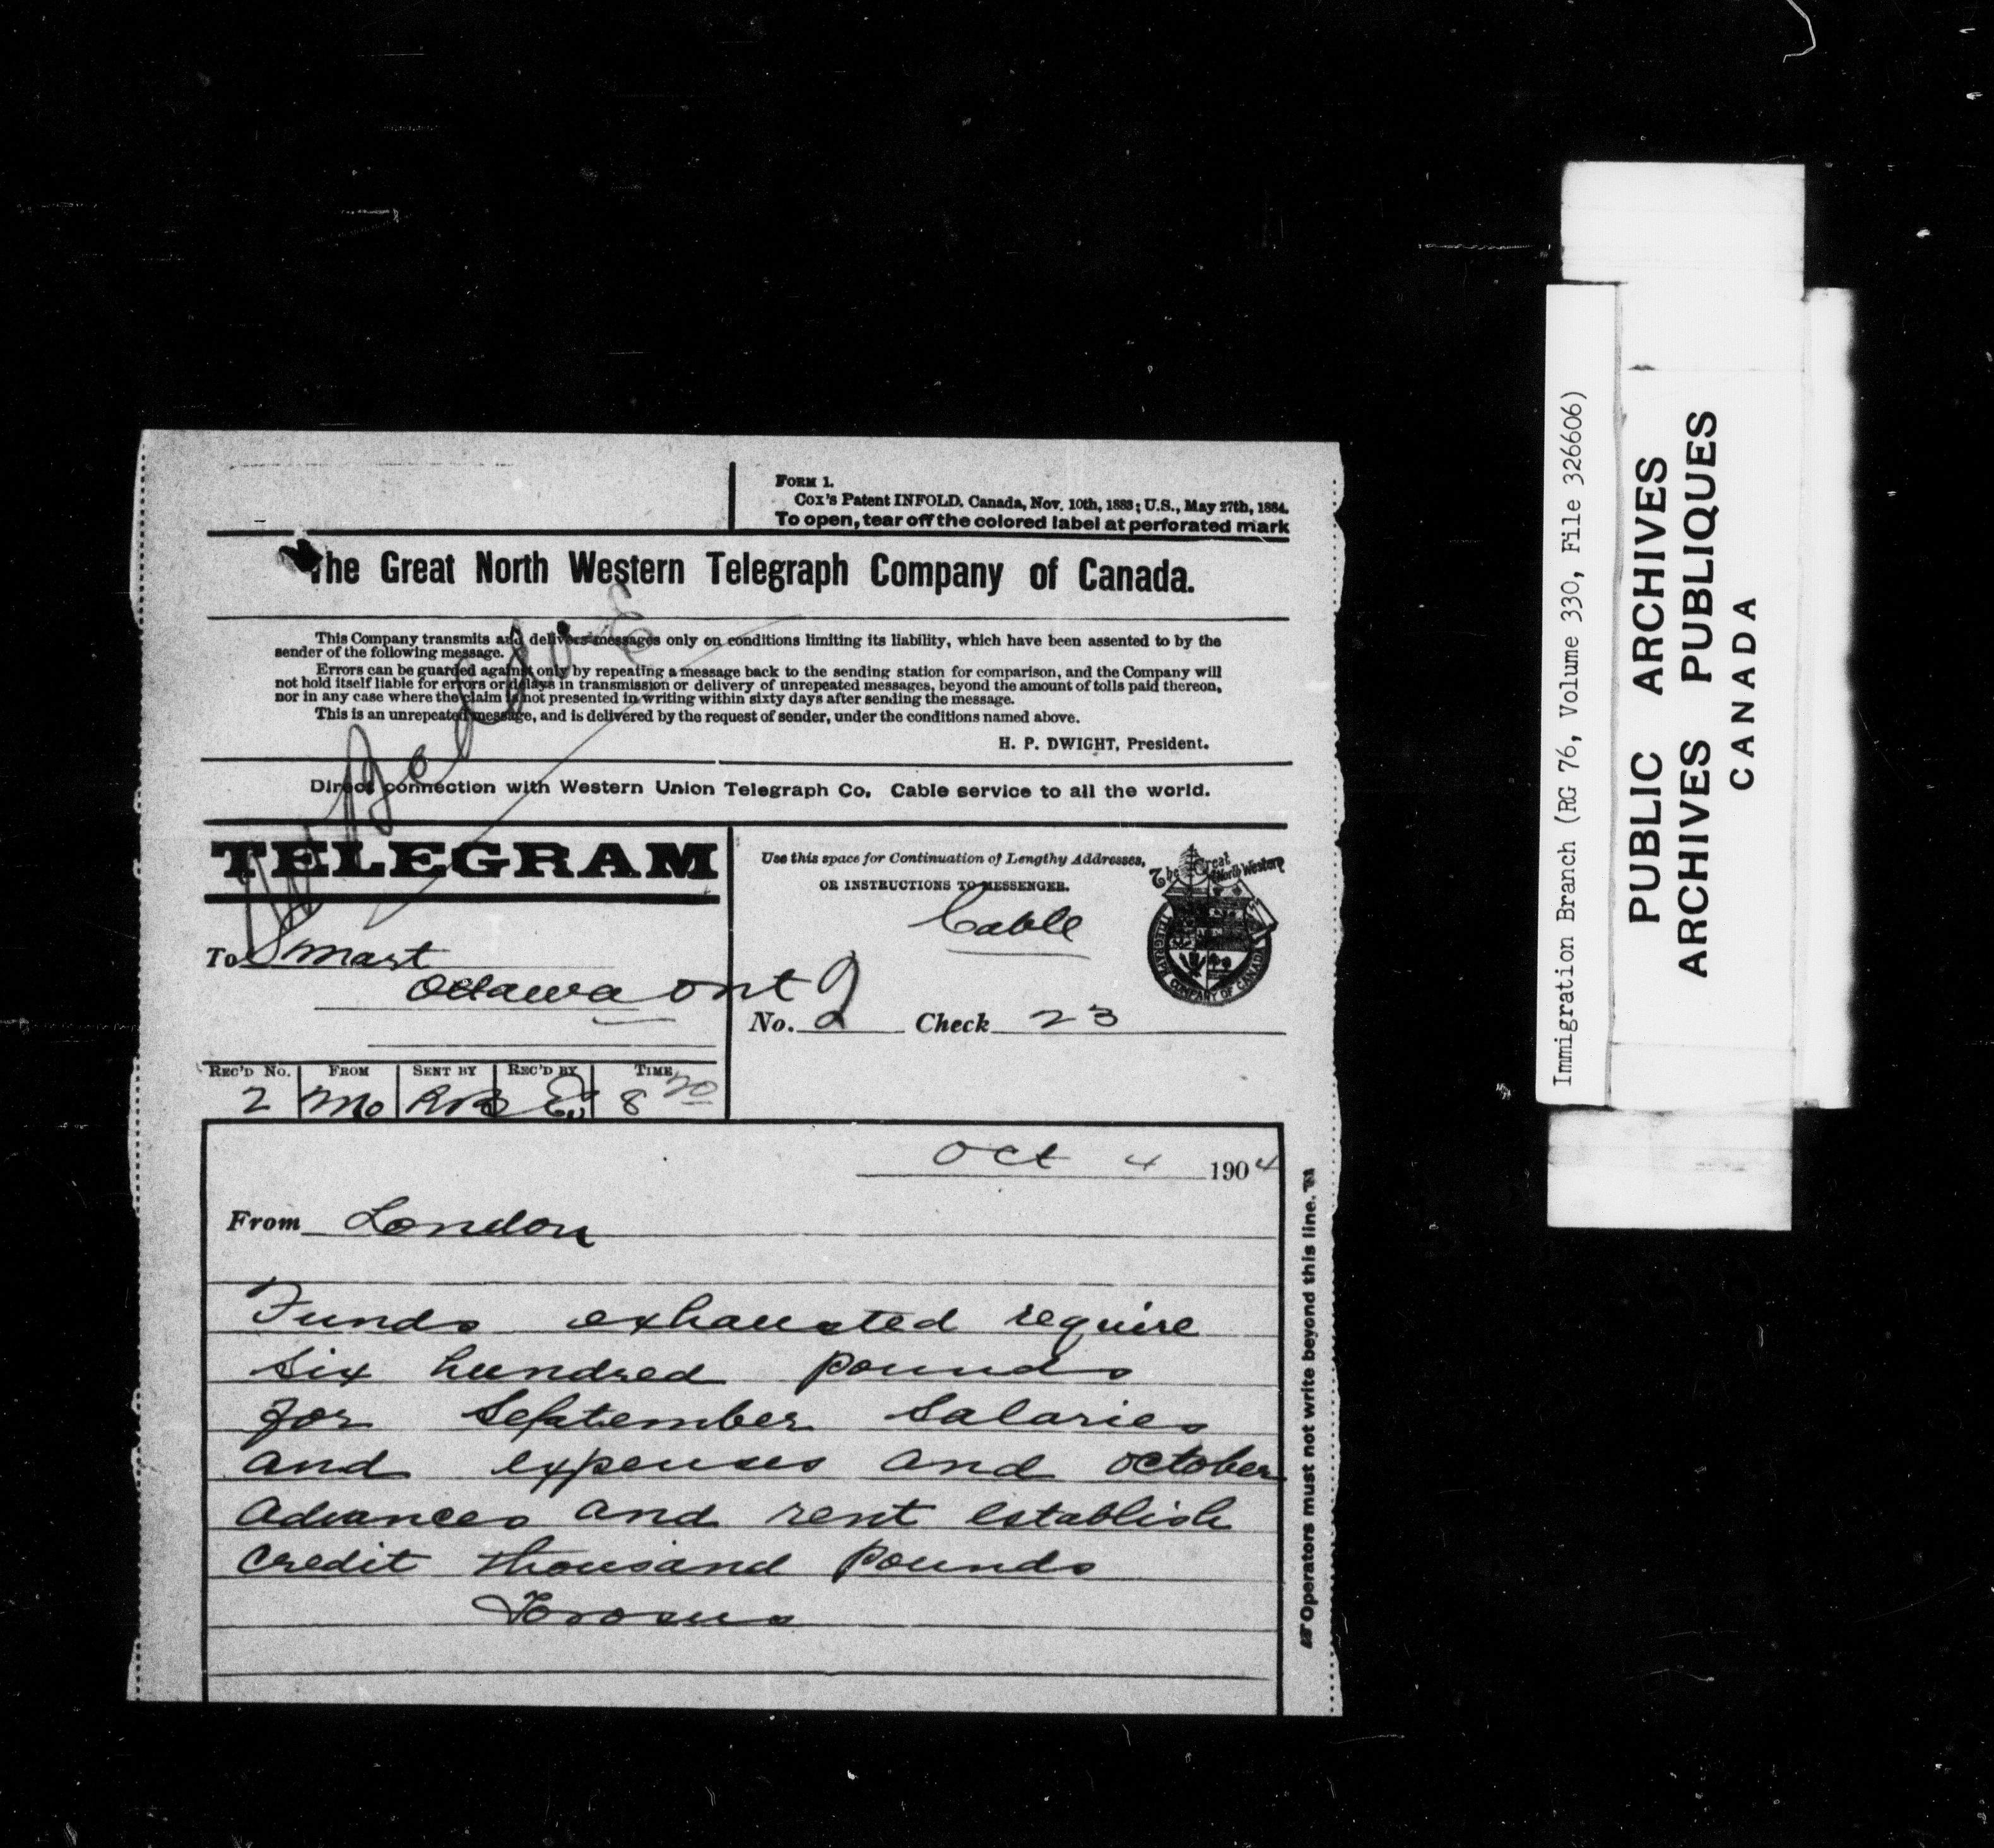 FORM 1.
Cox's Patent INFOLD. Canada, Nov. 10th, 1883; U.S., May 27th, 1884.
To open, tear off the colored label at perforated mark
The Great North Western Telegraph Company of Canada.
This Company transmits and delivers messages only on conditions limiting its liability, which have been assented to by the
sender of the following message.
Errors can be guarded against only by repeating a message back to the sending station for comparison, and the Company will
not hold itself liable for errors or delays in transmission or delivery of unrepeated messages, beyond the amount of tolls paid thereon,
nor in any case where the claim is not presented in writing within sixty days after sending the message.
This is an unrepeated message, and is delivered by the request of sender, under the conditions named above.
H. P. DWIGHT, President.
Direct connection with Western Union Telegraph Co. Cable service to all the world.
TELEGRAM
Use this space for Continuation of Lengthy Addresses,
OR INSTRUCTIONS TO MESSENGER.
Cable
The Great North Western
TELEGRAPH COMPANY OF CANADA
To Smart
Ottawa ont
No. 2 Check 23
REC'D NO. FROM SENT BY REC'D BY TIME
2 Mo 8 20
Oct 4 1904
From London
Funds exhausted require
six hundred pounds
for September Salaries
and expenses and october
advances and rent establish
credit thousand pounds
Operators must not write beyond this line.
Immigration Branch (RG 76, Volume 330, File 326606)
PUBLIC ARCHIVES
ARCHIVES PUBLIQUES
CANADA